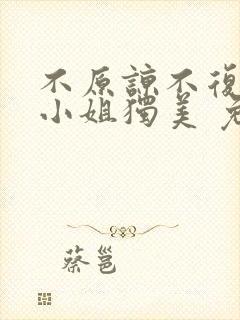 不原諒不復
小姐獨美 免
蔡邕